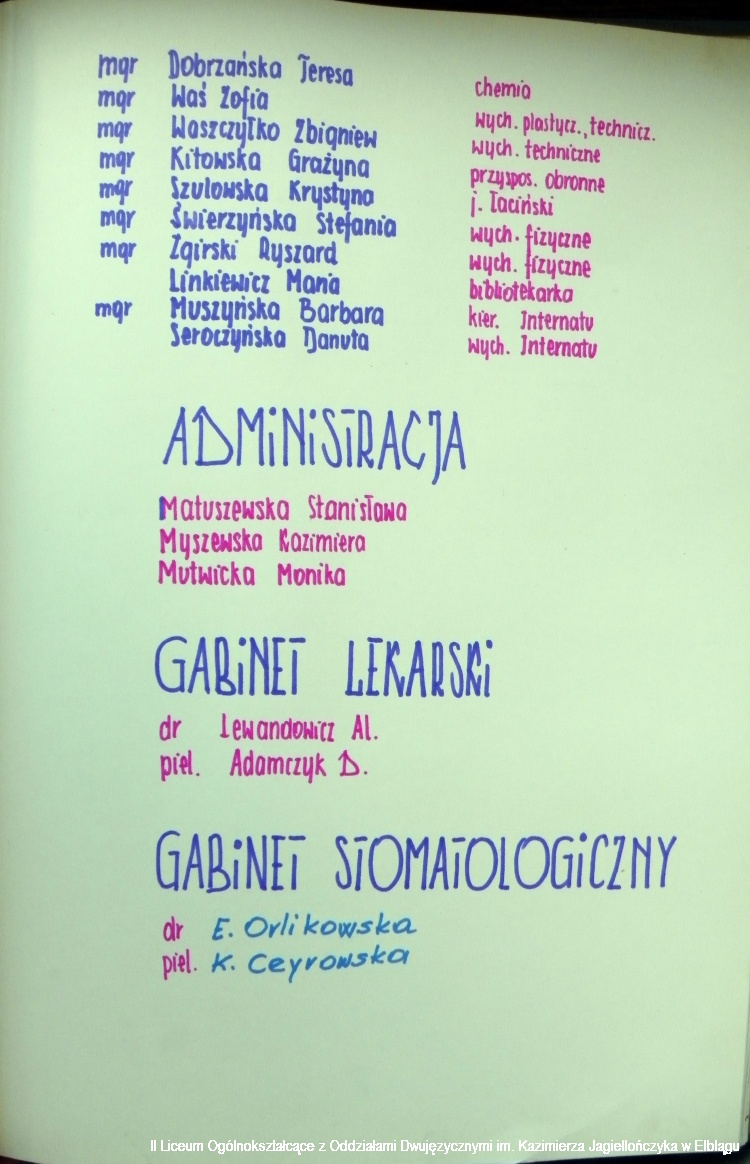 mgr Dobrzańska Teresa chemia
mgr Waś Zofia wych. plastycz., technicz.
mgr Woszczyłko Zbigniew wych. techniczne
mgr Kitowska Grażyna przyspos. obronne
mgr Szulowska Krystyna j. łaciński
mgr Świerzyńska Stefania wych. fizyczne
mgr Zgirski Ryszard wych. fizyczne
Linkiewicz Maria bibliotekarka
mgr Muszyńska Barbara kier. Internatu
Seroczyńska Danuta wych. Internatu
ADMINISTRACJA
Matuszewska Stanisława
Myszewska Kazimiera
Mutwicka Monika
GABINET LEKARSKI
dr Lewandowicz Al.
piel. Adamczyk D.
GABINET STOMATOLOGICZNY
dr E. Orlikowska
piel. K. Ceyrowska
II Liceum Ogólnokształcące z Oddziałami Dwujęzycznymi im. Kazimierza Jagiellończyka w Elblągu